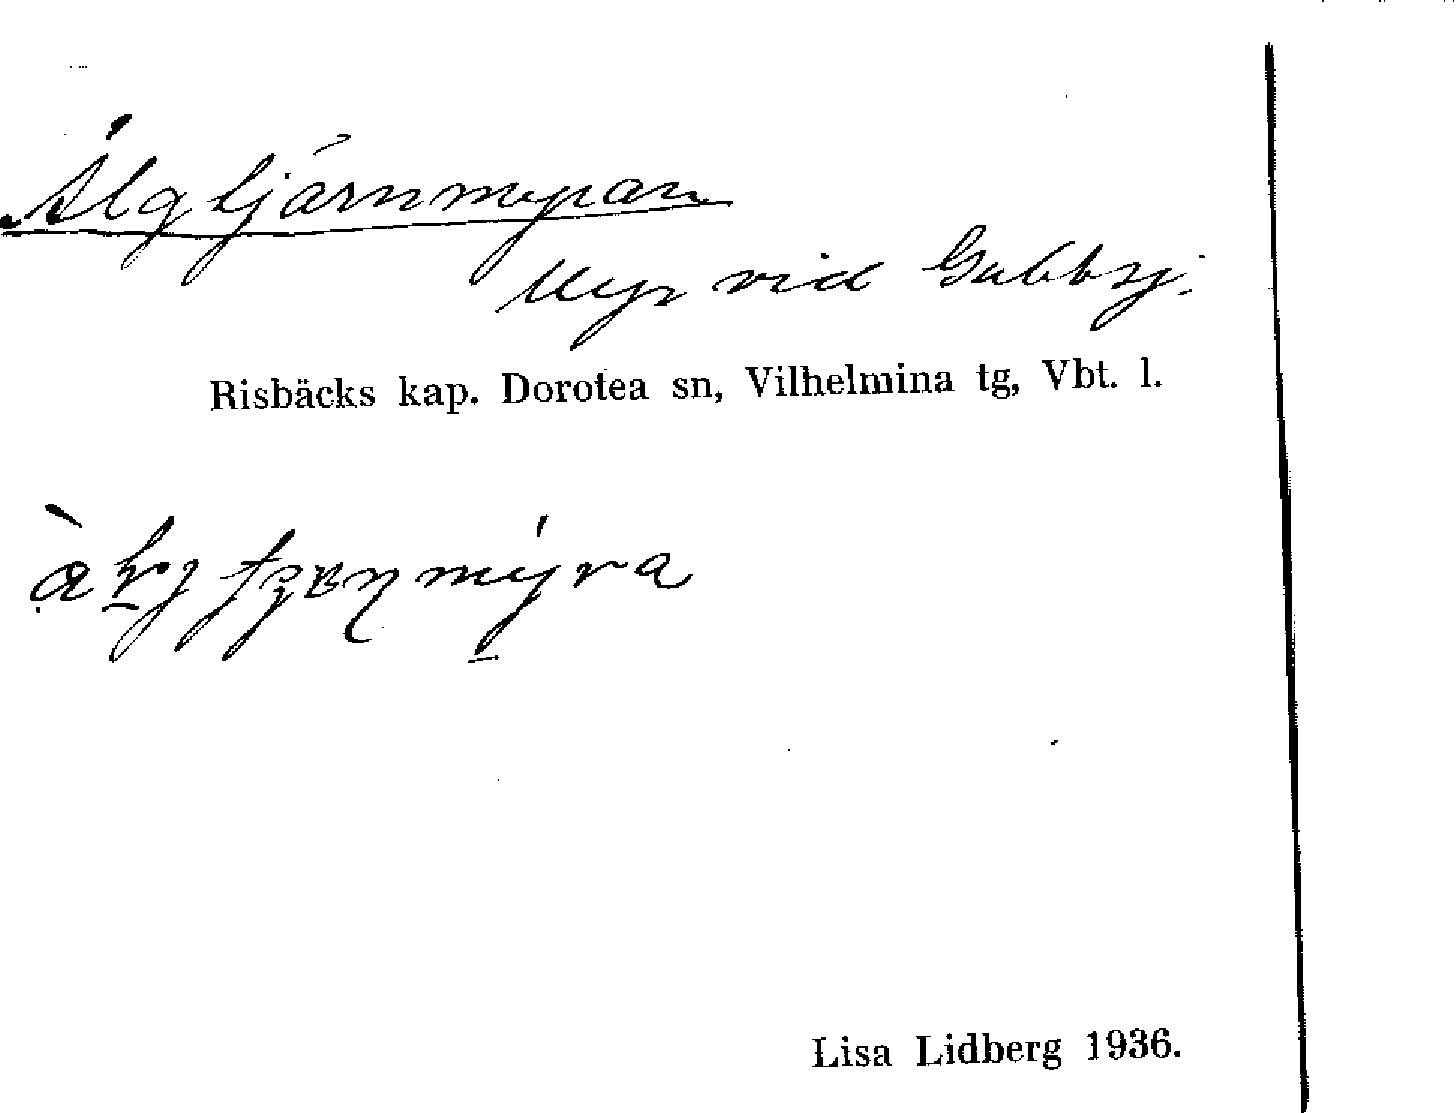 Älgtjärnmyran
Myr vid Gubbsj.
Risbäcks kap. Dorotea sn, Vilhelmina tg, Vbt. l.
Lisa Lidberg 1936.